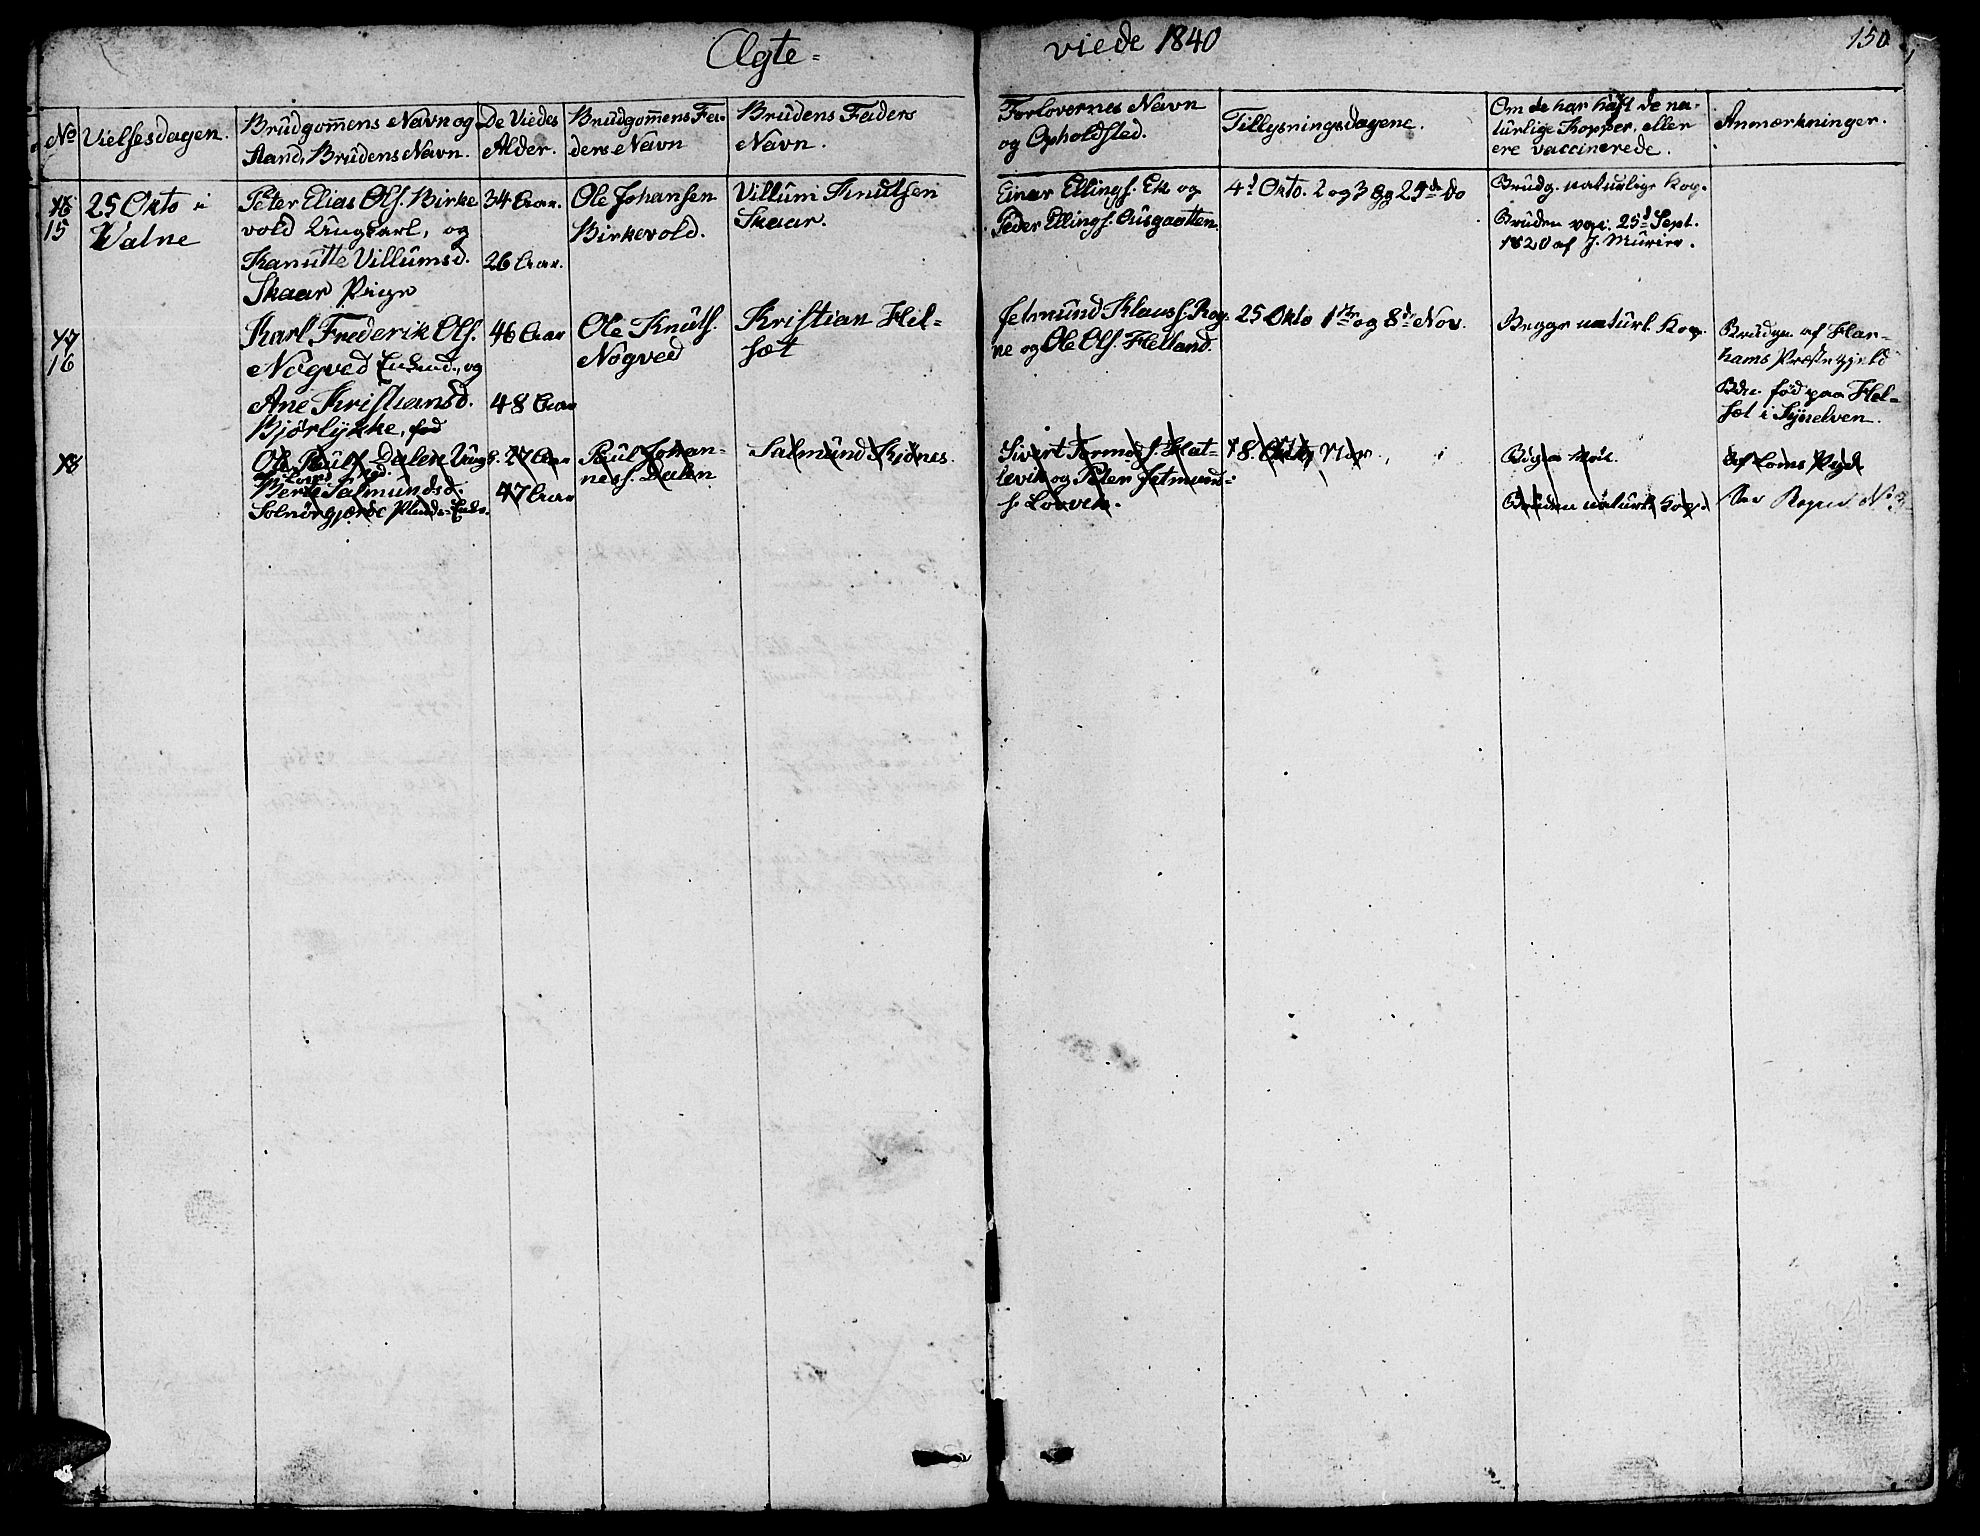 Ægte=
viede 1840
150
No
Vielsesdagen.
Brudgom̄ens Navn og
Stand, Brudens Navn.
De Viedes
Alder.
Brudgom̄ens Fa-
ders Navn
Brudens Faders
Navn.
Forlovernes Navn
og Opholdsted.
Tillysningsdagene.
Om de har haft de na-
turlige Kopper, eller
ere vaccinerede.
Anmærkninger.
15
25 Okto i
Valne
Peter Elias Ols. Birke
vold Ungkarl, og
Kanutte Villumsd.
Skaar Pige
34 Aar.
26 Aar.
Ole Johansen
Birkevold.
Villum Knutsen
Skaar.
Einar Ellings. Ek og
Peder Ellings. Ausgaotten.
4d Okto. 2 og 3 25de do
Brudg. naturlige Kop.
Bruden vac. 25d Sept.
1820 af J. Murier.
17
16
Karl Frederik Ols.
Nogved Enkmd., og
Ane Kristiansd.
Bjørlykke, fød
46 Aar
48 Aar
Ole Knuts.
Nogved
Kristian Hel-
sæt
Jetmund Klaus. Rog-
ne og Ole Ols. Helland.
25 Okto 1ste og 8de Nov.
Begge naturl. Kop.
Brudgn af Har-
hams Præstegjeld
Bdn fød paa Hel-
sæt i Synelven.
18
Ole Pauls. Dalen Ungk.
Berte Salmundsd.
Solnørgjærde Plads-Enke.
27 Aar
47 Aar
Paul Johan-
ness. Dalen
Salmund Kjønes.
Sivert Tormods. Hat-
levik og Peter Jetmund-
s. Lovik.
8 Nov.
Bruden naturl. Kop.
af Loms Pgd.